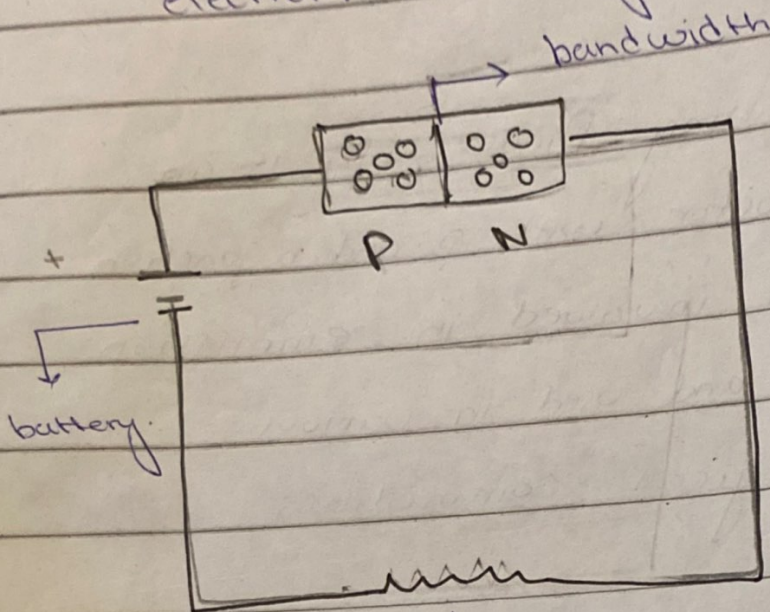 bandwidth
P N
+
battery.